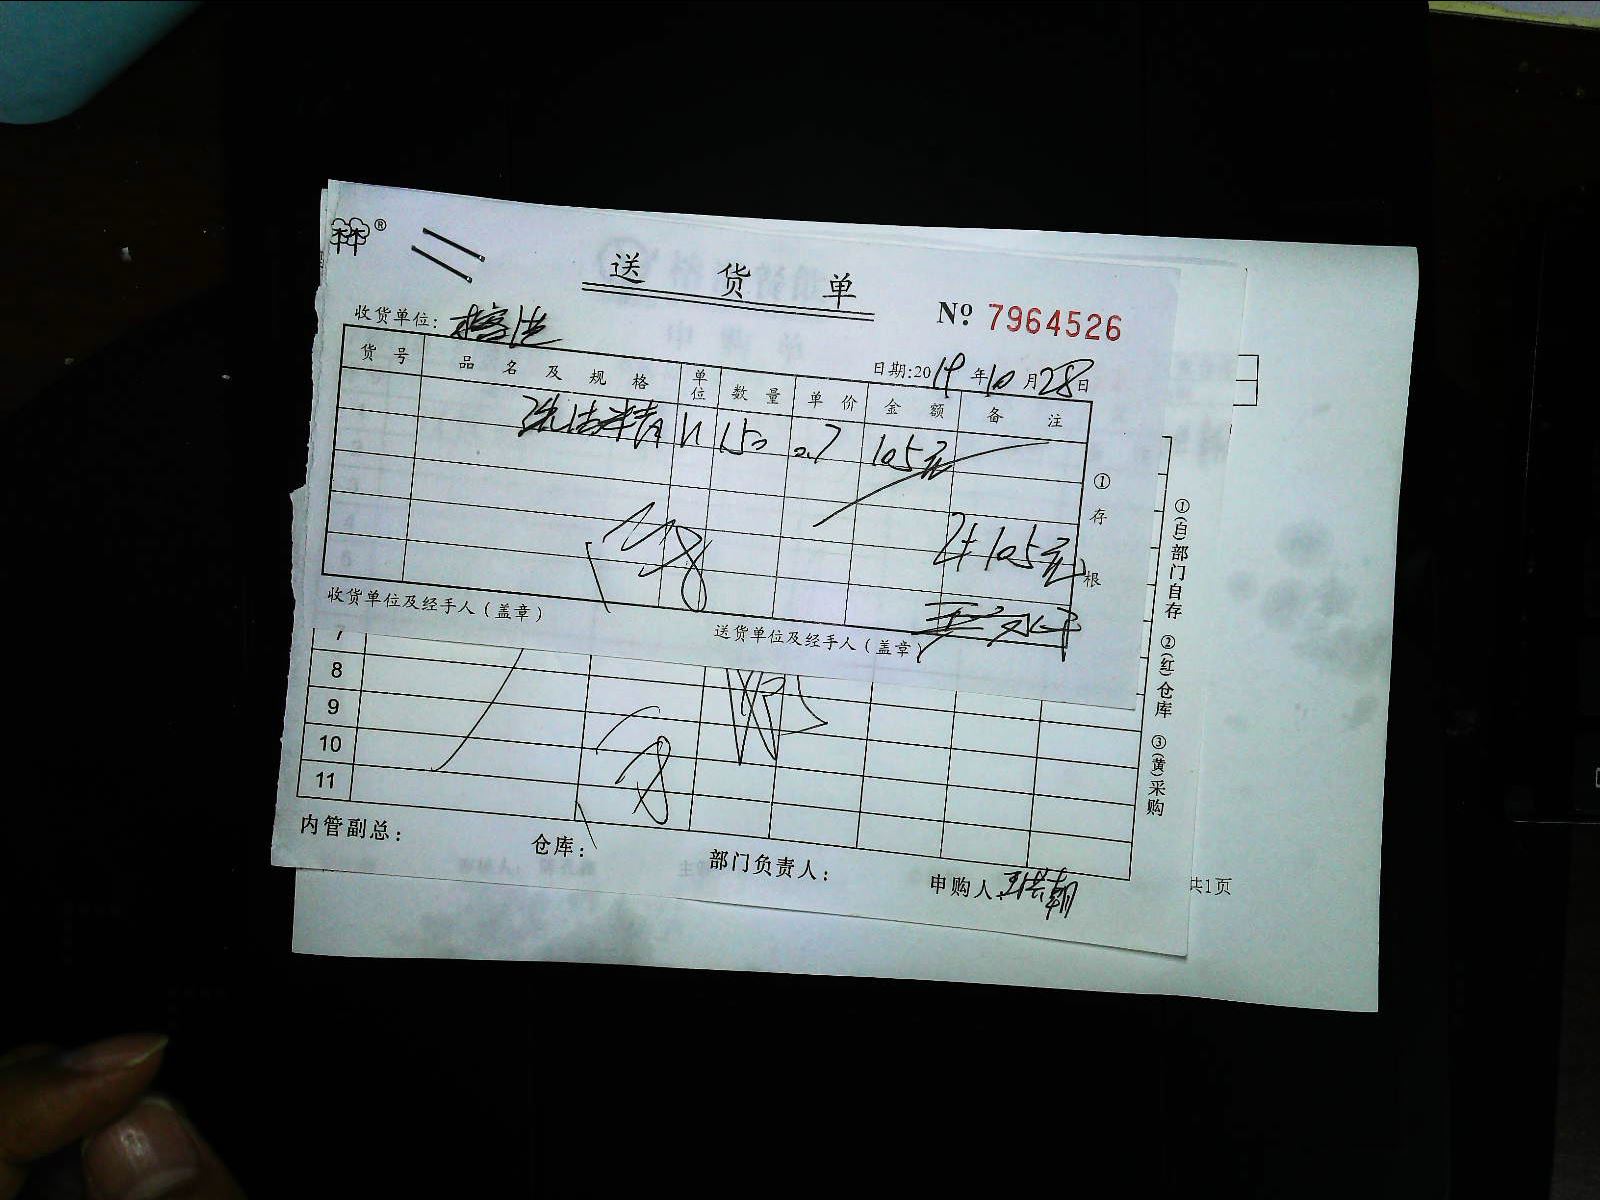 林®
送 货 单
№ 7964526
收货单位:
日期:2019年10月28日
货号 品名及规格 单位 数量 单价 金额 备注
洗洁精 150 0.7 105元
计105元
①存根
收货单位及经手人（盖章）
送货单位及经手人（盖章）
7
8
9
10
11
①(白)部门自存 ②(红)仓库 ③(黄)采购
内管副总：
仓库：
部门负责人：
申购人:
共1页